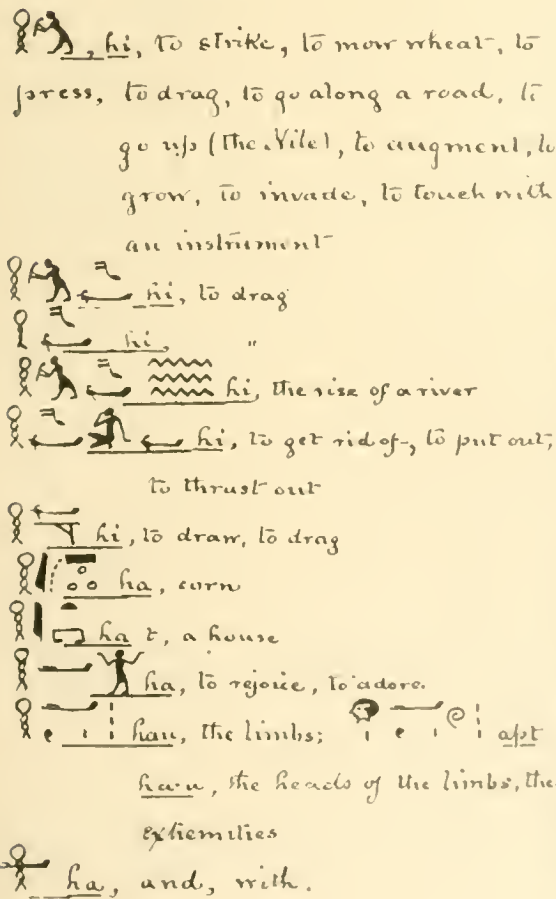 , hi, to strike, to mow wheat, to
press, to drag, to go along a road, to
go up (the Nile), to augment, to
grow, to invade, to touch with
an instrument
hi, to drag
hi, "
hi, the rise of a river
hi, to get rid of, to put out,
to thrust out
hi, to draw, to drag
ha, corn
ha t, a house
ha, to rejoice, to adore.
hau, the limbs; apt
ha-u, the heads of the limbs, the
extremities
ha, and, with.